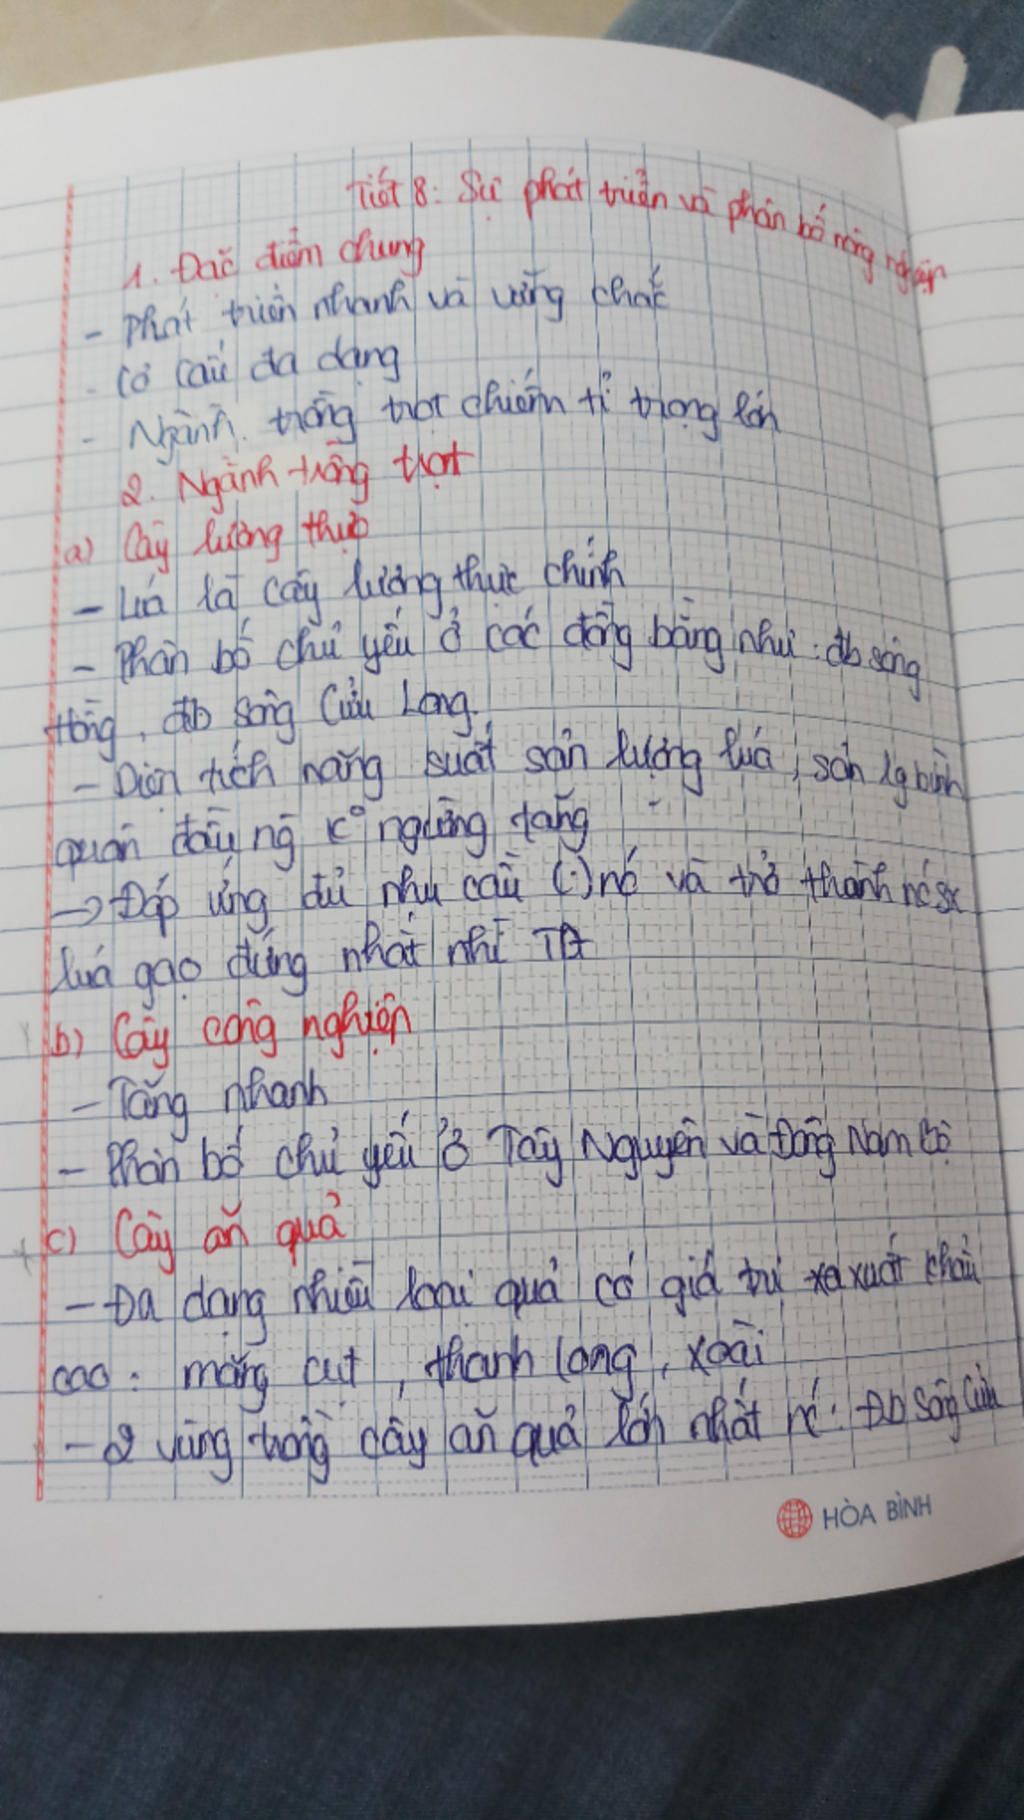 Tiết 8: Sự phát triển và phân bố nông nghiệp
1. Đặc điểm chung
- Phát triển nhanh và vững chắc
- Cơ cấu đa dạng
- Ngành trồng trọt chiếm tỉ trọng lớn
2. Ngành trồng trọt
a) Cây lương thực
- Lúa là cây lương thực chính
- Phân bố chủ yếu ở các đồng bằng như: đb sông
Hồng, đb sông Cửu Long.
- Diện tích năng suất sản lượng lúa, sản lg bình
quân đầu ng k° ngừng tăng
-> Đáp ứng đủ nhu cầu (.) nc và trở thành nc sx
lúa gạo đứng nhất nhì TG
b) Cây công nghiệp
- Tăng nhanh
- Phân bố chủ yếu ở Tây Nguyên và Đông Nam Bộ
c) Cây ăn quả
- Đa dạng nhiều loại quả có giá trị xuất khẩu
cao: măng cụt, thanh long, xoài
- 2 vùng trồng cây ăn quả lớn nhất nc: Đb Sông Cửu
HÒA BÌNH